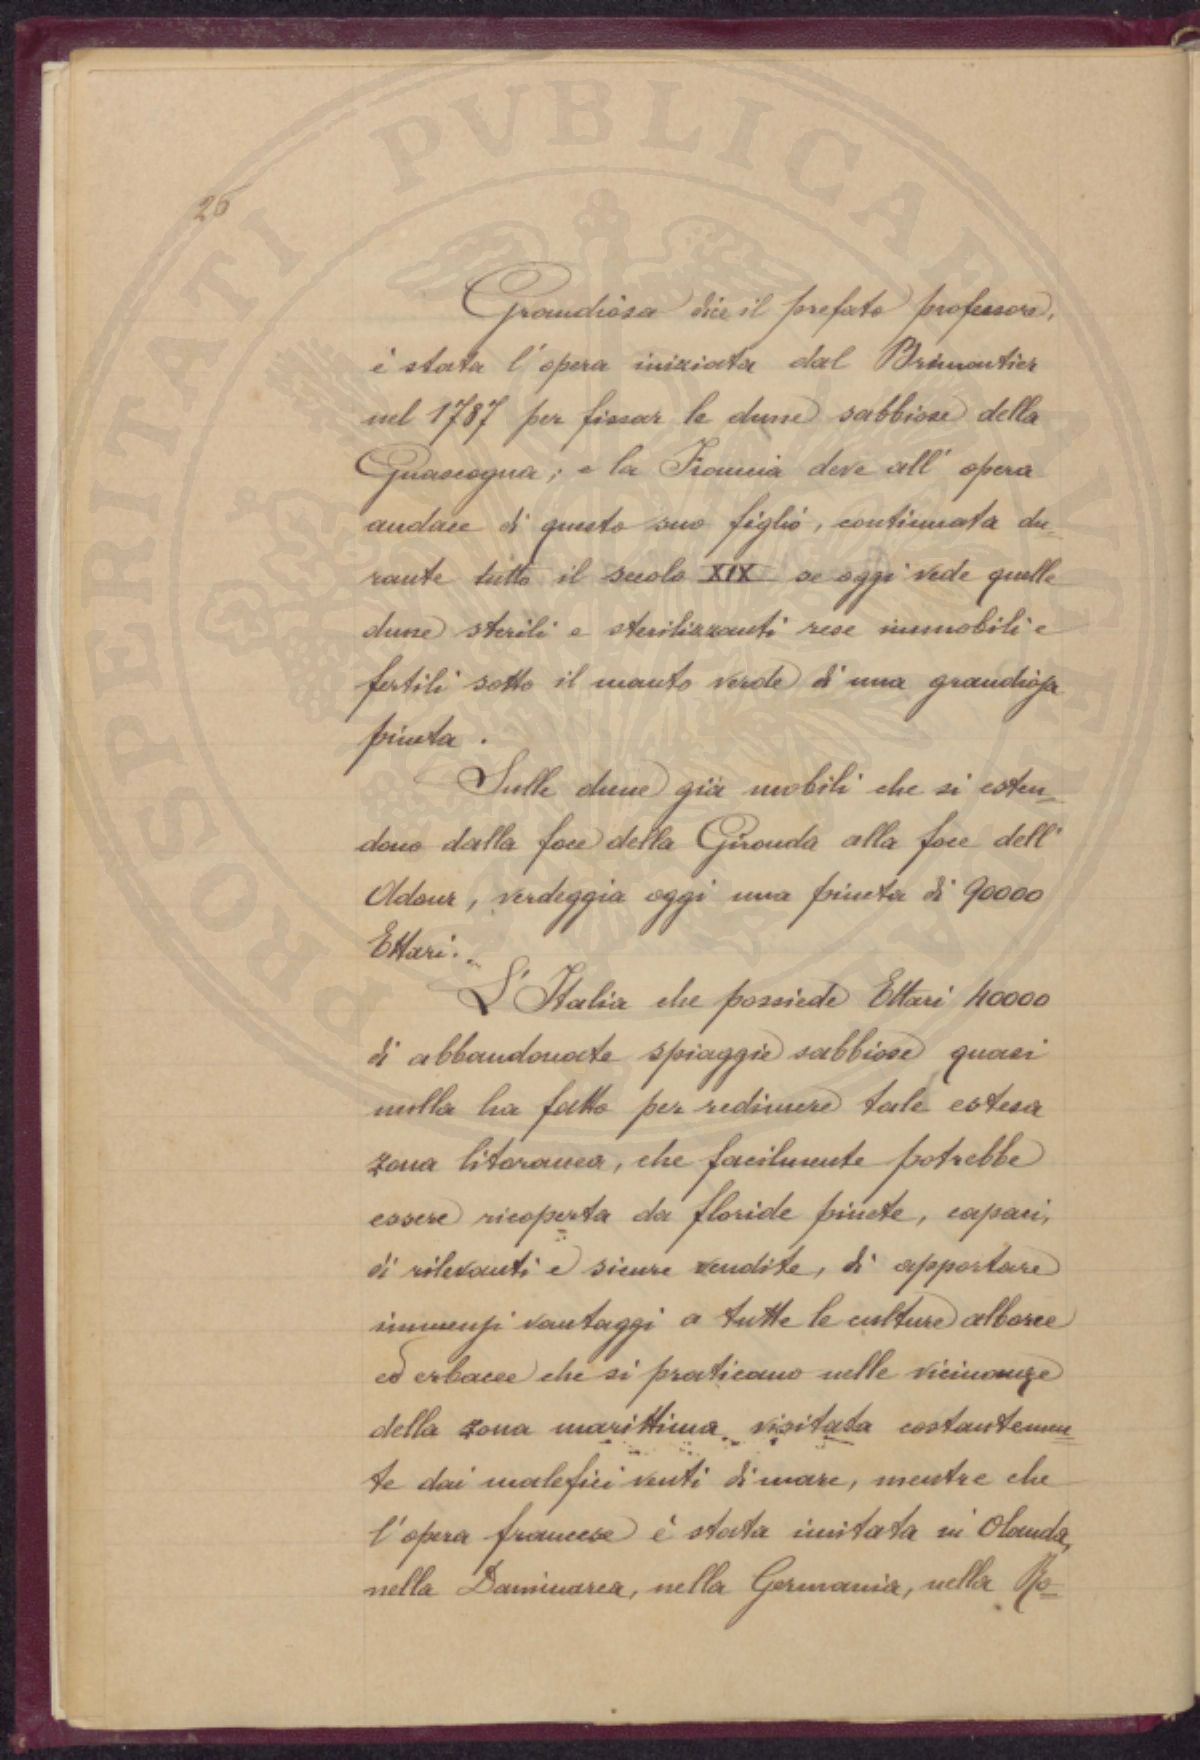 PROSPERITATI PVBLICAE AVGENDAE
26
Grandiosa dice il prefato professore,
è stata l'opera iniziata dal Brimontier
nel 1787 per fissar le dune sabbiose della
Guascogna; e la Francia deve all'opera
audace di questo suo figlio, continuata du=
rante tutto il secolo XIX se oggi vede quelle
dune sterili e sterilizzanti rese immobili e
fertili sotto il manto verde di una grandiosa
pineta.
Sulle dune già mobili che si esten=
dono dalla foce della Gironda alla foce dell'
Adour, verdeggia oggi una pineta di 90000
Ettari.
L'Italia che possiede Ettari 40000
di abbandonate spiaggie sabbiose quasi
nulla ha fatto per redimere tale estesa
zona litoranea, che facilmente potrebbe
essere ricoperta da floride pinete, capaci,
di rilevanti e sicure rendite, di apportare
immensi vantaggi a tutte le culture alboree
ed erbacee che si praticano nelle vicinanze
della zona marittima visitata costantemen=
te dai malefici venti di mare, mentre che
l'opera francese è stata imitata in Olanda,
nella Danimarca, nella Germania, nella Ro=